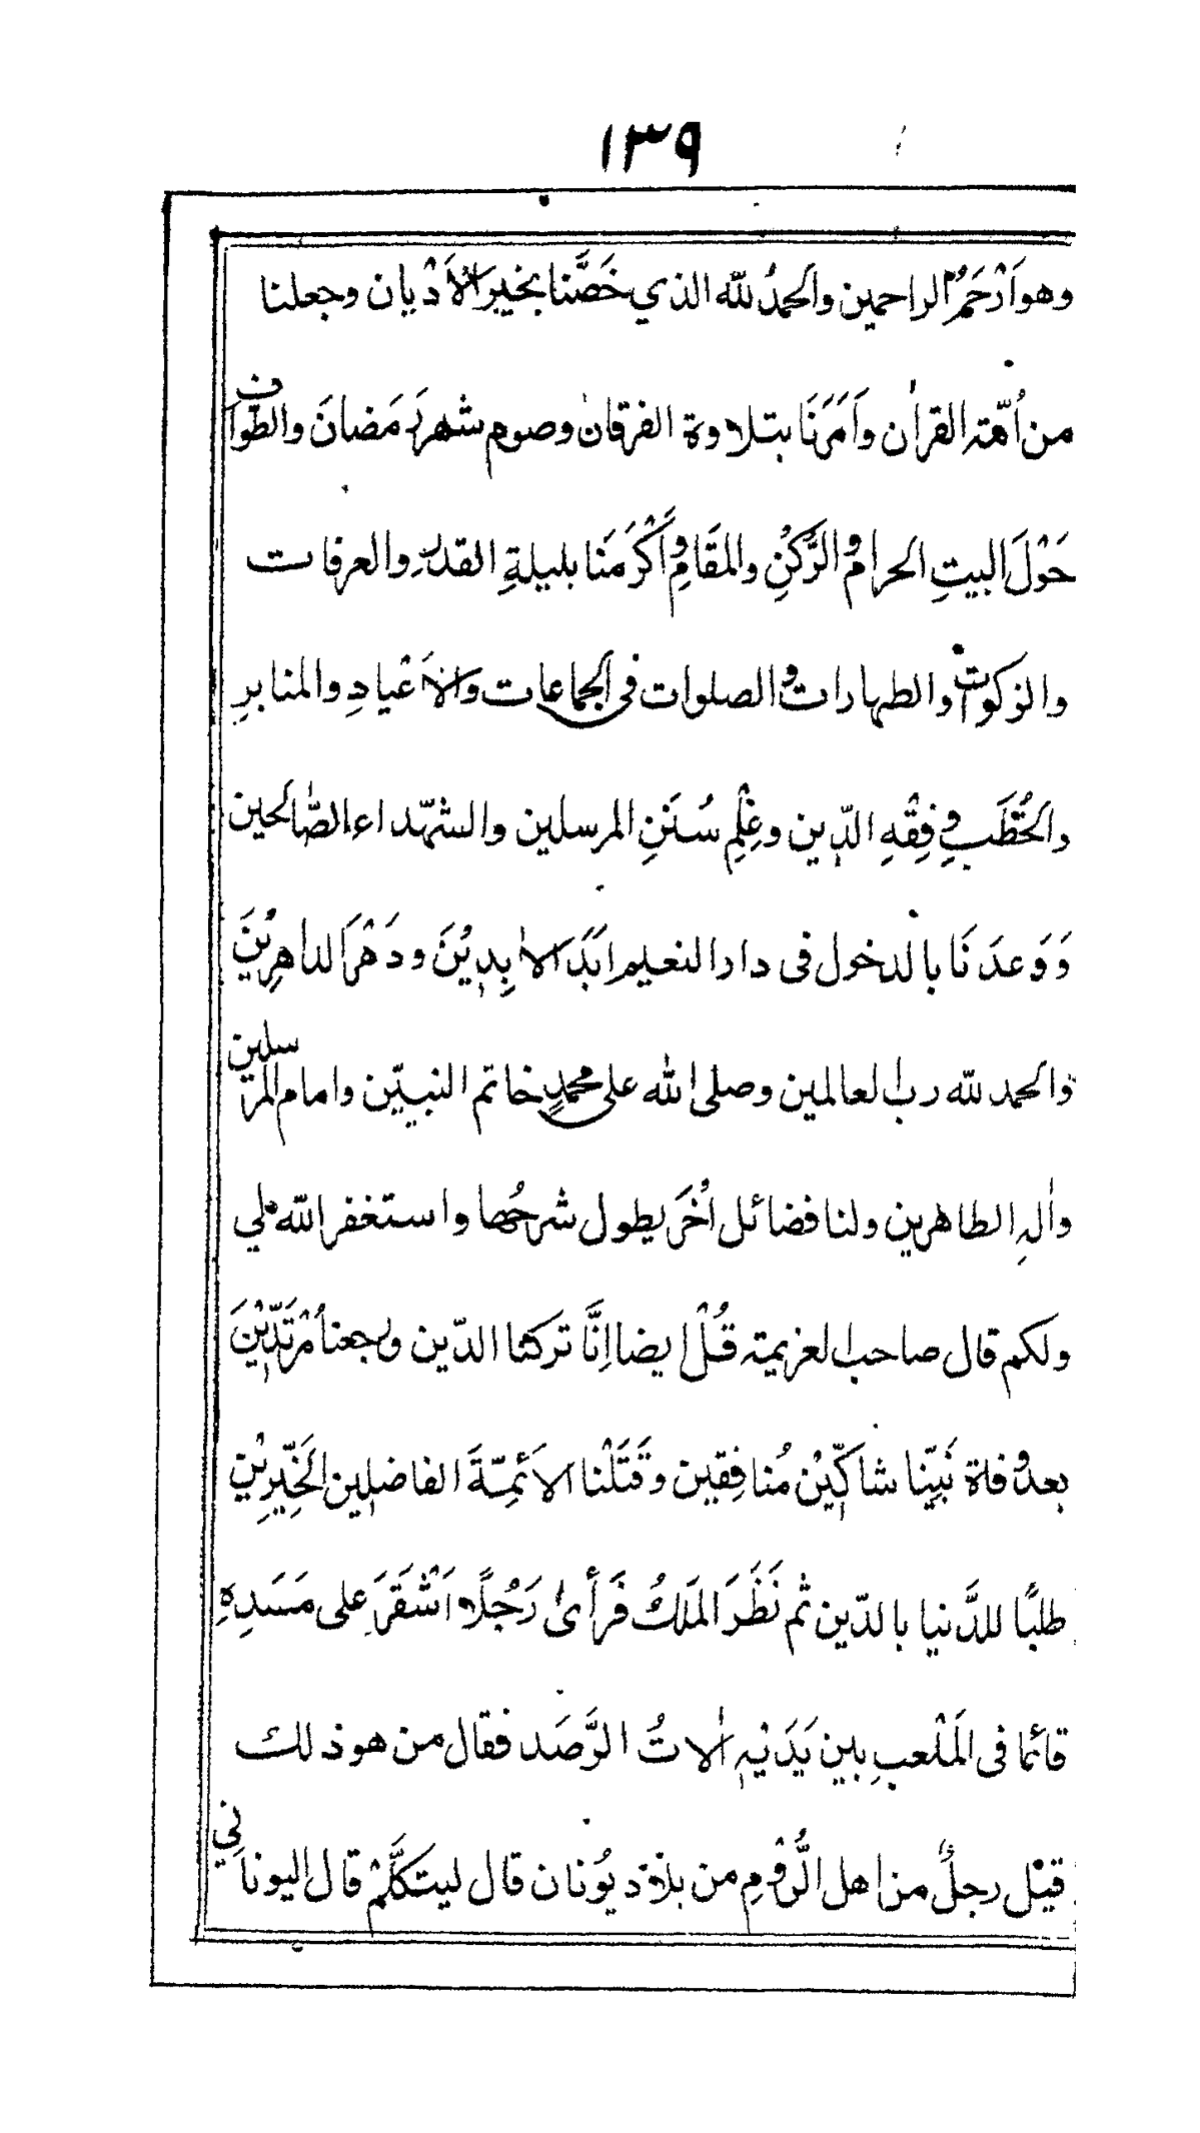 ١٣٩
وهو اَرْحَمُ الراحمين والحمدُ للّه الذي خَصَّنا بخيرِ الأَدْيان وجعلنا
من اُمّته القراٰن واَمَرَنَا بتلاوة الفرقان وصوم شهر رَمَضانَ والطوان
حَوْلَ البيتِ الحرام والرُّكْنِ والمقَامِ وأَكْرَمَنا بليلةِ القدرِ والعرفات
والزكوات والطهارات والصلوات فى الجماعات والأَعْيادِ والمنابرِ
والخُطَب في فِقْهِ الدّين وعِلْمِ سُنَنِ المرسلين والشهّداء الصّالحين
وَوَعدَنَا بالدخول فى دار النعيم ابَدَ الاٰبِدِيْنَ ودَهْرَ الداهرِيْنَ
والحمد للّه رب العالمين وصلى الله على محمدٍ خاتم النبيّين وامام المرسلين
واٰلهِ الطاهرين ولنا فضائل اُخَر يطول شرحُها واستغفر اللّه لي
ولكم قال صاحب العزيمته قُلْ ايضا اِنَّا تركنا الدّين ورجعنا مُرْتَدِّيْنَ
بعد وفاة نَبيّنا شاكِّيْن مُنافِقين وقَتَلْنا الاَئمّةَ الفاضلين الخَيِّرِيْن
طلبًا للدَّنيا بالدّين ثم نَظَرَ المَلَكُ فَرأىٰ رَجُلًا اَشْقَرَ على مَسَدِهِ
قائما فى المَلْعبِ بين يَدَيْهِ اٰلاتُ الرَّصَد فقال من هو ذلك
قيْل رجلٌ من اهل الرُّوْمِ من بلاد يُونان قال ليتكلَّمْ قال اليونانِي